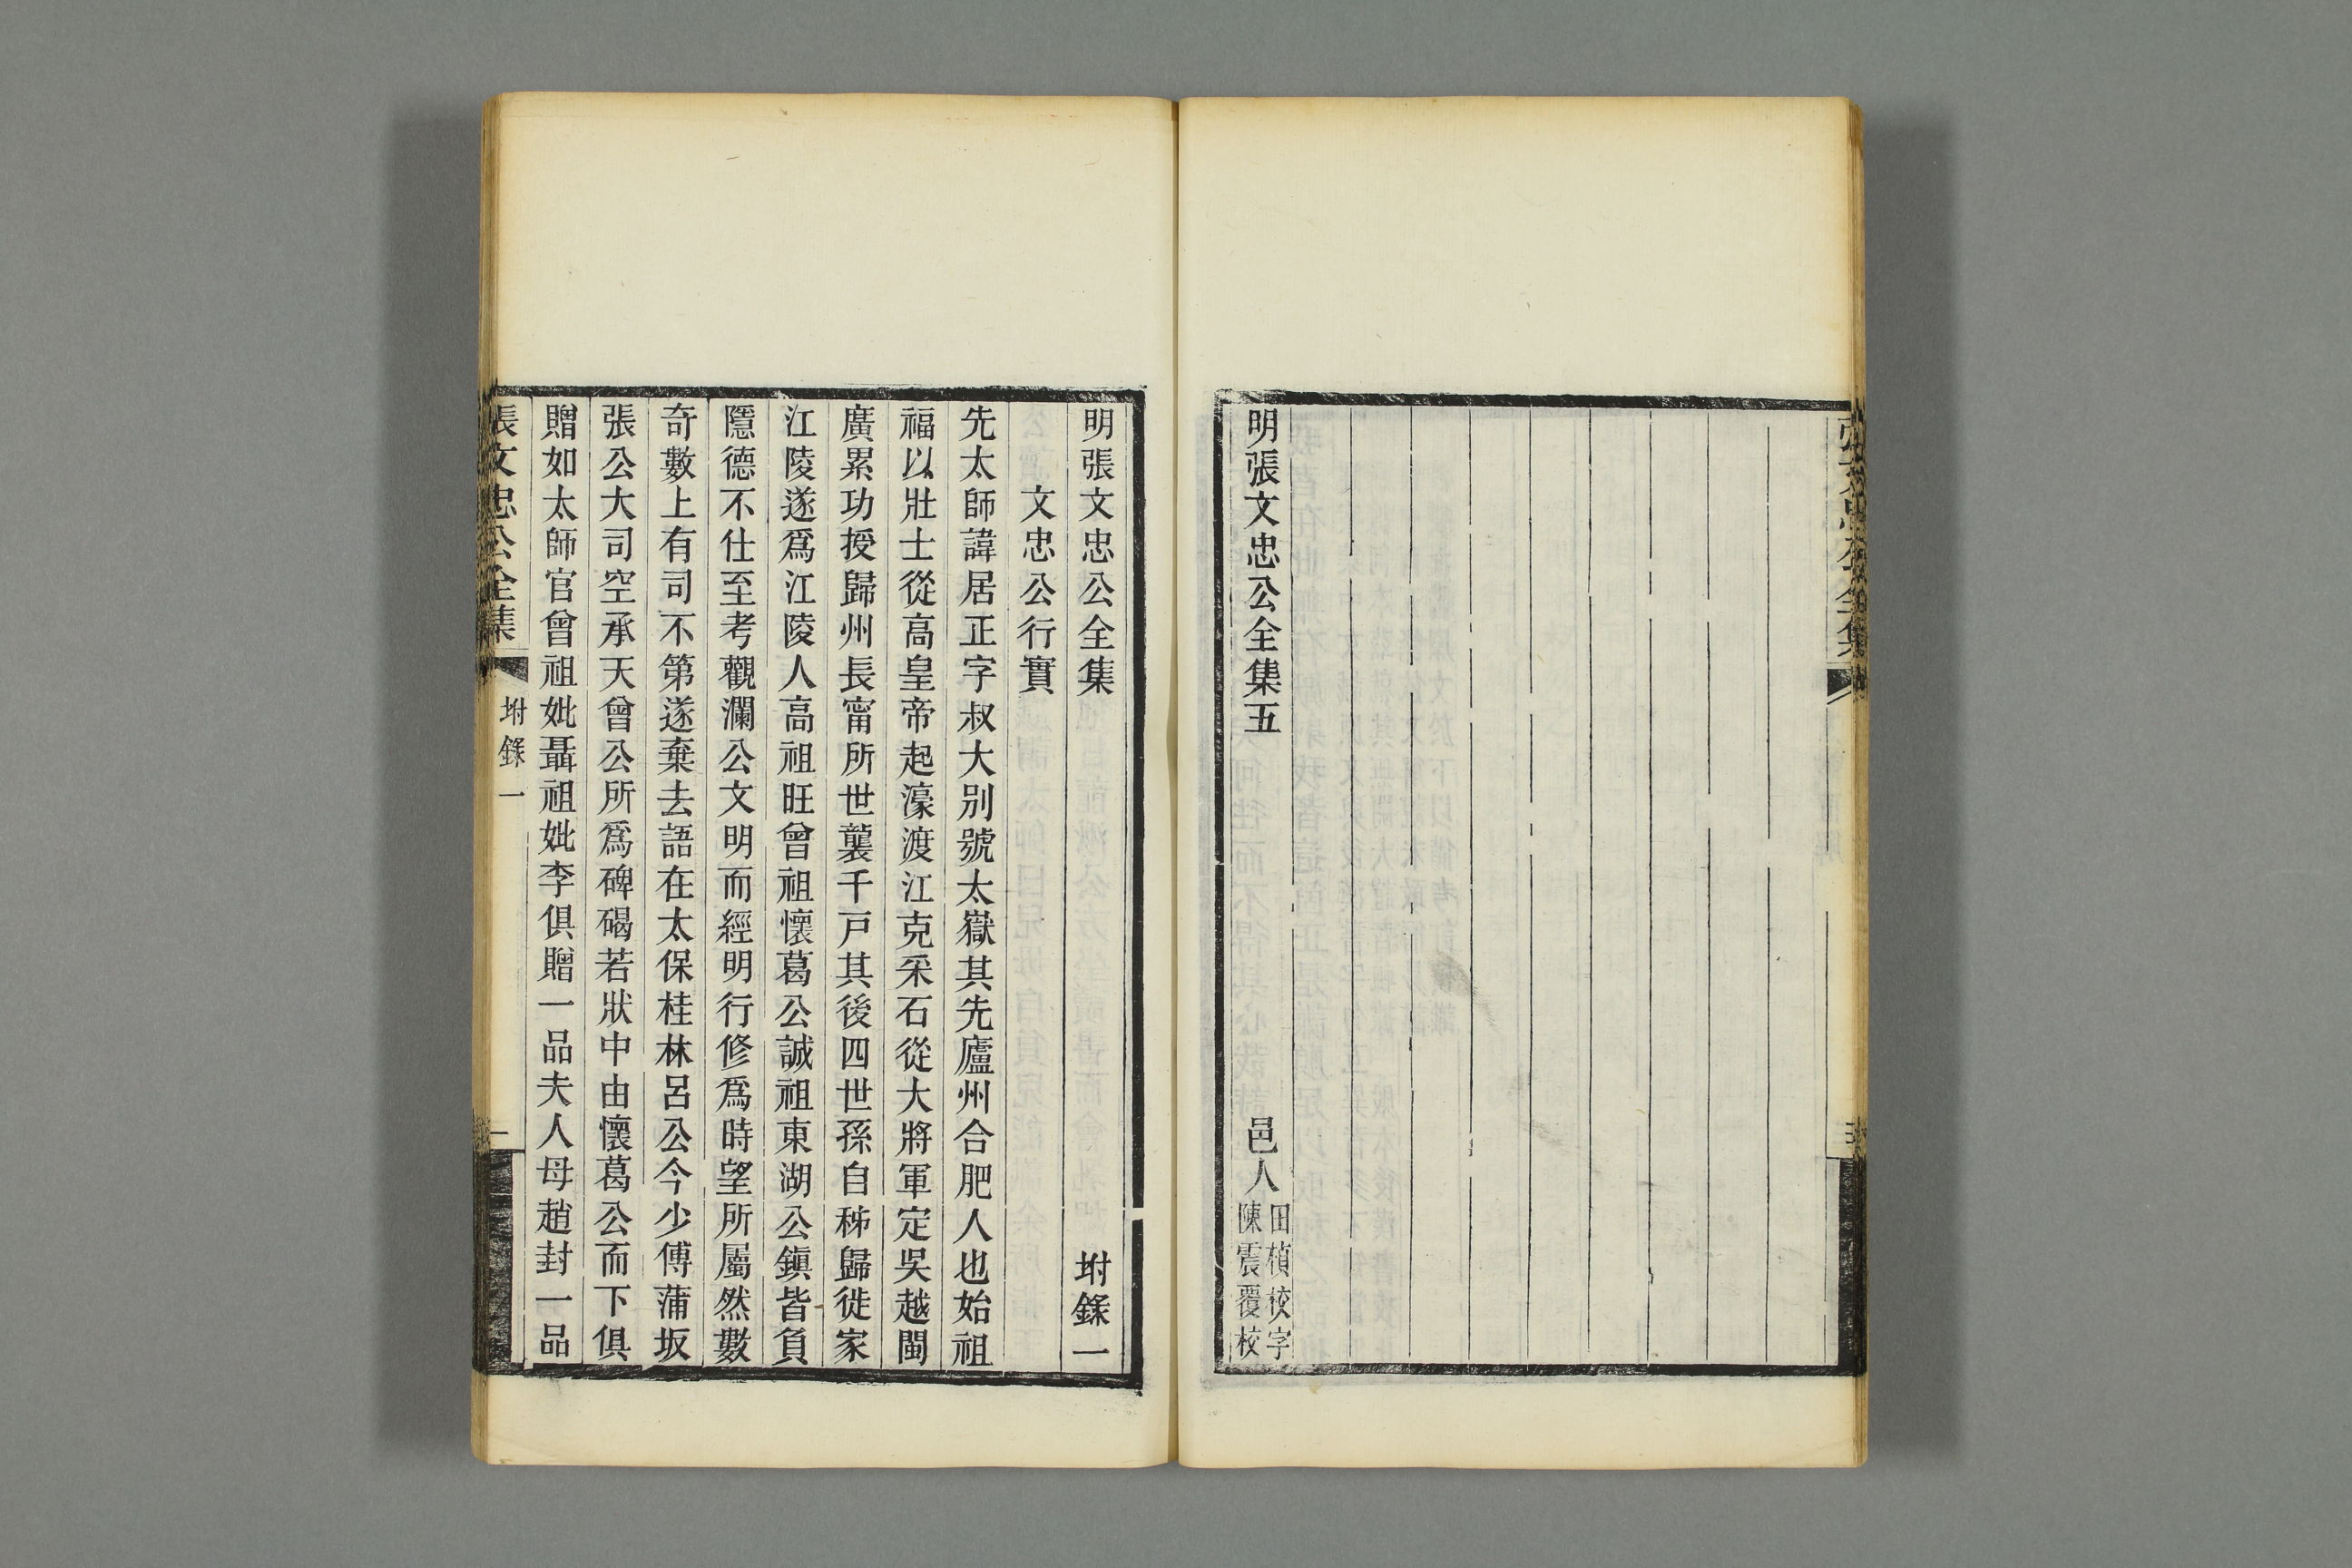 明張文忠公全集五
邑人
田楨校字
陳震覆校
明張文忠公全集 坿錄一
文忠公行實
先太師諱居正字叔大別號太嶽其先廬州合肥人也始祖
福以壯士從高皇帝起濠渡江克采石從大將軍定吳越閩
廣累功授歸州長甯所世襲千戸其後四世孫自秭歸徙家
江陵遂爲江陵人高祖旺曾祖懷葛公誠祖東湖公鎭皆負
隱德不仕至考觀瀾公文明而經明行修爲時望所屬然數
奇數上有司不第遂棄去語在太保桂林呂公今少傅蒲坂
張公大司空承天曾公所爲碑碣若狀中由懷葛公而下俱
贈如太師官曾祖妣聶祖妣李俱贈一品夫人母趙封一品
張文忠公全集 坿錄一 一